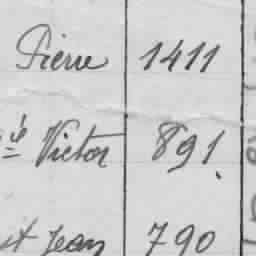 Pierre 1411
Victor 891
st Jean 790